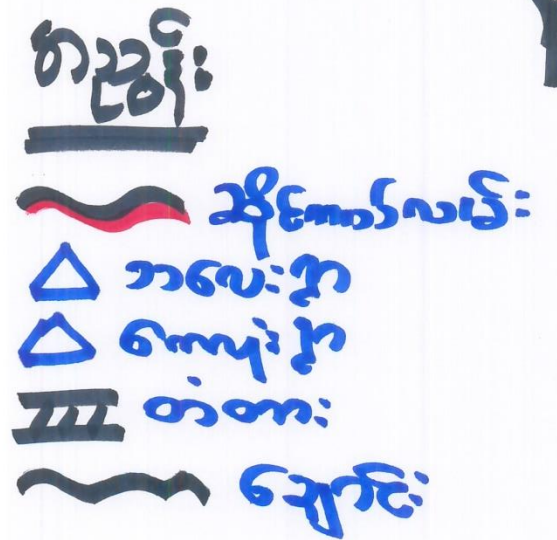 အညွန်း
ဆိုင်ကယ်လမ်း
ဘလေးရွာ
ရွာ
တံတား
ချောင်း